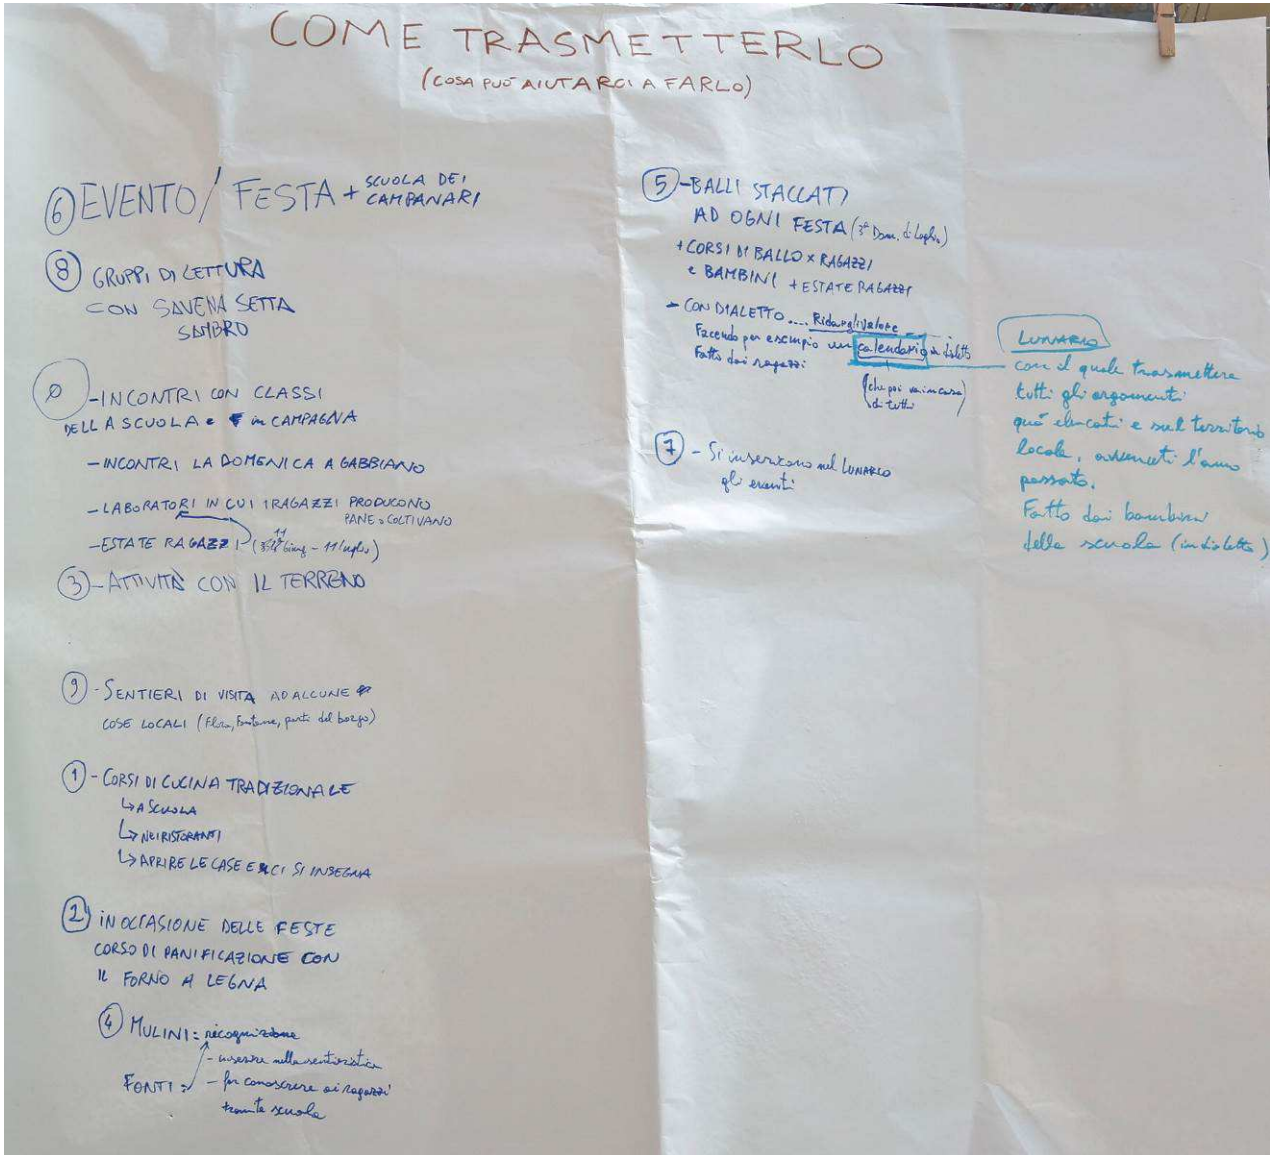 COME TRASMETTERLO
(COSA PUÒ AIUTARCI A FARLO)
6 EVENTO / FESTA + SCUOLA DEI
CAMPANARI
8 GRUPPI DI LETTURA
CON SAVENA SETTA
SAMBRO
0 - INCONTRI CON CLASSI
DELLA SCUOLA e in CAMPAGNA
- INCONTRI LA DOMENICA A GABBIANO
- LABORATORI IN CUI I RAGAZZI PRODUCONO
PANE o COLTIVANO
- ESTATE RAGAZZI (11 Giug - 11 luglio)
3 - ATTIVITÀ CON IL TERRENO
9 - SENTIERI DI VISITA AD ALCUNE
COSE LOCALI (Flora, Fontane, parti del borgo)
1 - CORSI DI CUCINA TRADIZIONALE
↳ A SCUOLA
↳ NEI RISTORANTI
↳ APRIRE LE CASE E CI SI INSEGNA
2 IN OCCASIONE DELLE FESTE
CORSO DI PANIFICAZIONE CON
IL FORNO A LEGNA
4 MULINI: ricognizione
- inserire nella sentieristica
FONTI: - far conoscere ai ragazzi
tramite scuola
5 - BALLI STACCATI
AD OGNI FESTA (3ª Dom. di Luglio)
+ CORSI DI BALLO x RAGAZZI
e BAMBINI + ESTATE RAGAZZI
- CON DIALETTO .... Ridargli valore
Facendo per esempio un calendario in dialetto
Fatto dai ragazzi
(che poi va in casa
di tutti)
7 - Si inseriscono nel LUNARIO
gli eventi
LUNARIO
con il quale trasmettere
tutti gli argomenti
quà elencati e sul territorio
locale, avvenuti l'anno
passato.
Fatto dai bambini
della scuola (in dialetto)